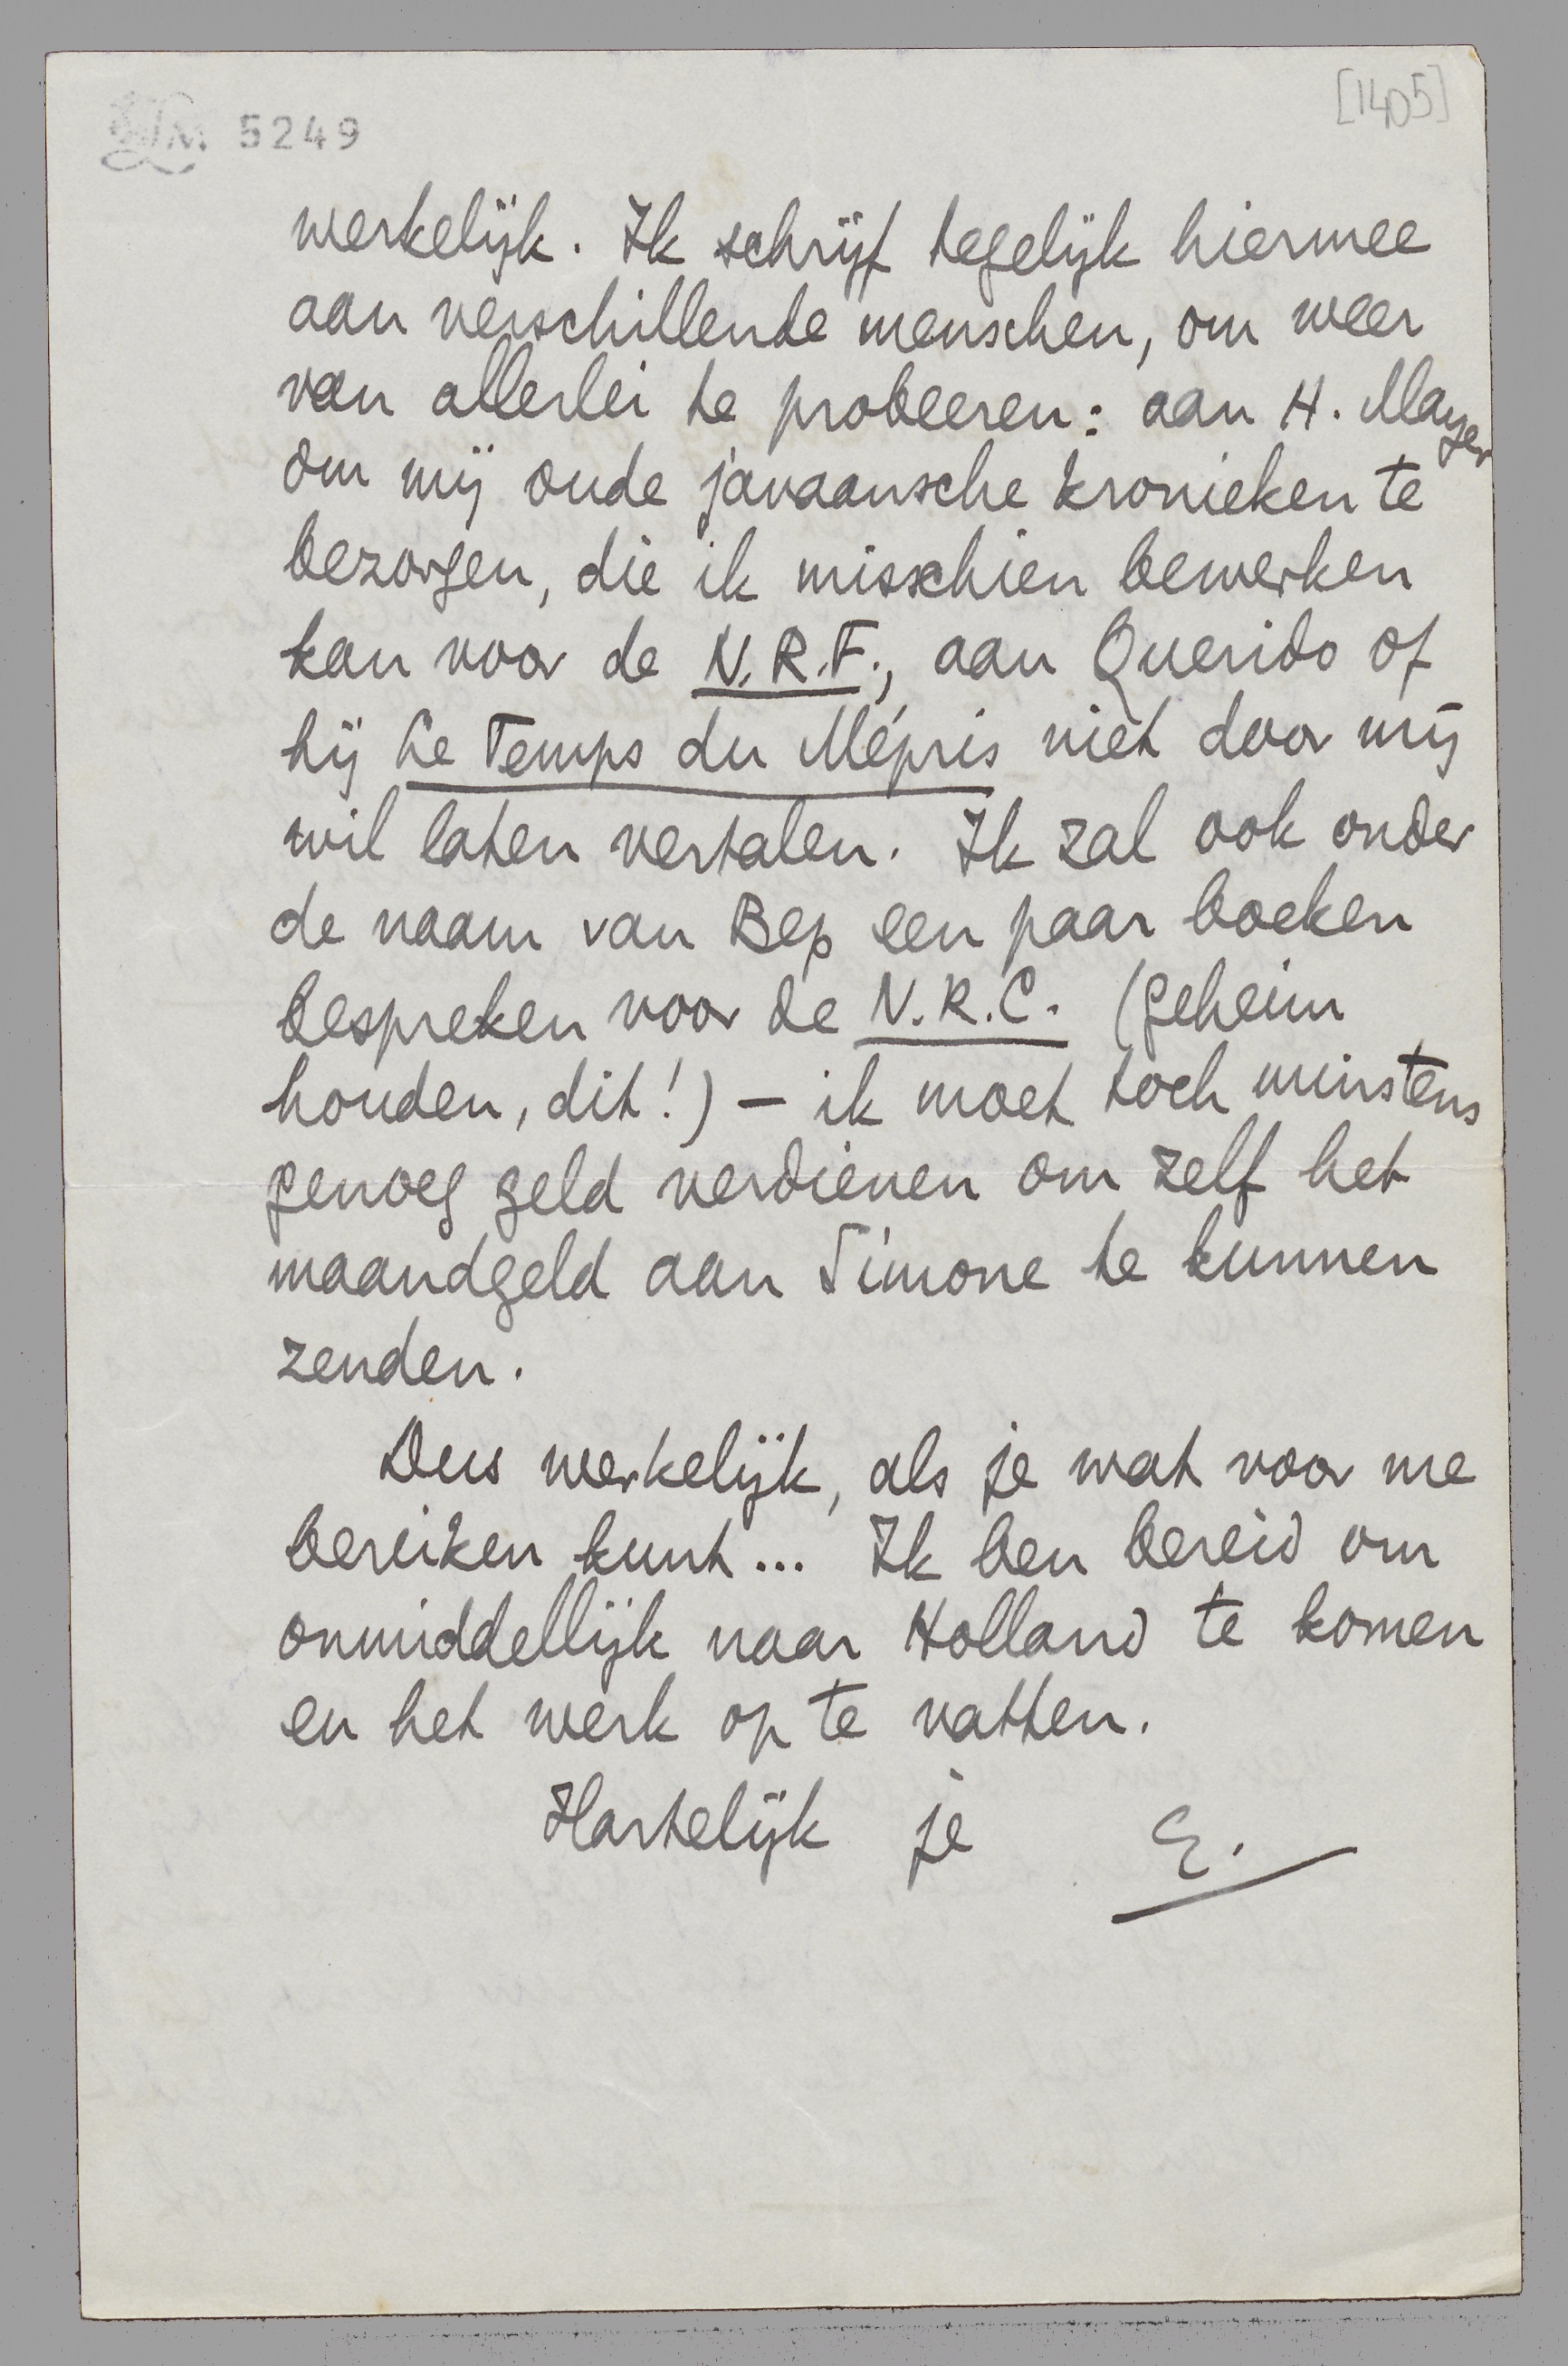 LM 5249
[1405]
werkelijk. Ik schrijf tegelijk hiermee
aan verschillende menschen, om weer
van allerlei te probeeren: aan H. Mayer
om mij oude javaansche kronieken te
bezorgen, die ik misschien bewerken
kan voor de N.R.F., aan Querido of
hij Le Temps du Mépris niet door mij
wil laten vertalen. Ik zal ook onder
de naam van Bep een paar boeken
bespreken voor de N.R.C. (geheim
houden, dit!) – ik moet toch minstens
genoeg geld verdienen om zelf het
maandgeld aan Simone te kunnen
zenden.
Dus werkelijk, als je wat voor me
bereiken kunt... Ik ben bereid om
onmiddellijk naar Holland te komen
en het werk op te vatten.
Hartelijk je E.